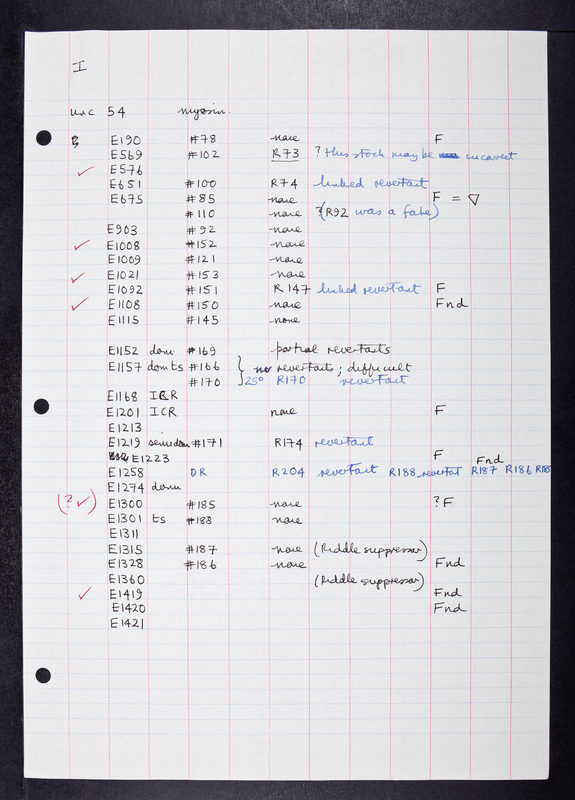 I
unc 54 myosin.
E190 #78 none F
E569 #102 R73 ? this stock may be incorrect
✓ E576
E651 #100 R74 linked revertant
E675 #85 none F = ▽
#110 none ? (R92 was a fake)
E903 #92 none
✓ E1008 #152 none
E1009 #121 none
✓ E1021 #153 none
E1092 #151 R147 linked revertant F
✓ E1108 #150 none Fnd
E1115 #145 none
E1152 dom #169 partial revertants
E1157 dom ts #166 } no revertants; difficult
#170 25° R170 revertant
E1168 ICR
E1201 ICR none F
E1213
E1219 semidom #171 R174 revertant
E1223 F Fnd
E1258 DR R204 revertant R188 revertant R187 R186 R185
E1274 dom
(?✓) E1300 #185 none ? F
E1301 ts #188 none
E1311
E1315 #187 none (Riddle suppressor)
E1328 #186 none Fnd
E1360 (Riddle suppressor)
✓ E1419 Fnd
E1420 Fnd
E1421